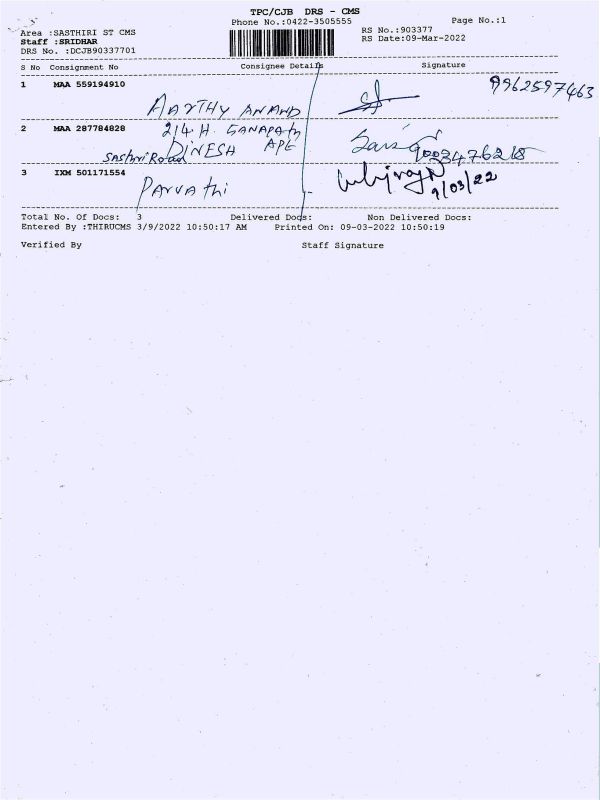 TPC/CJB DRS - CMS
Phone No.:0422-3505555
Page No.:1
Area :SASTHIRI ST CMS
RS No.:903377
Staff :SRIDHAR
RS Date:09-Mar-2022
DRS No. :DCJB90337701
S No Consignment No Consignee Details Signature
1 MAA 559194910
AARTHY ANAND
9962597463
2 MAA 287784828
214 H. GANAPATH
Sasthri Road DINESH APE
3 IXM 501171554
Parvathi
9/03/22
Total No. Of Docs: 3 Delivered Docs: Non Delivered Docs:
Entered By :THIRUCMS 3/9/2022 10:50:17 AM Printed On: 09-03-2022 10:50:19
Verified By Staff Signature